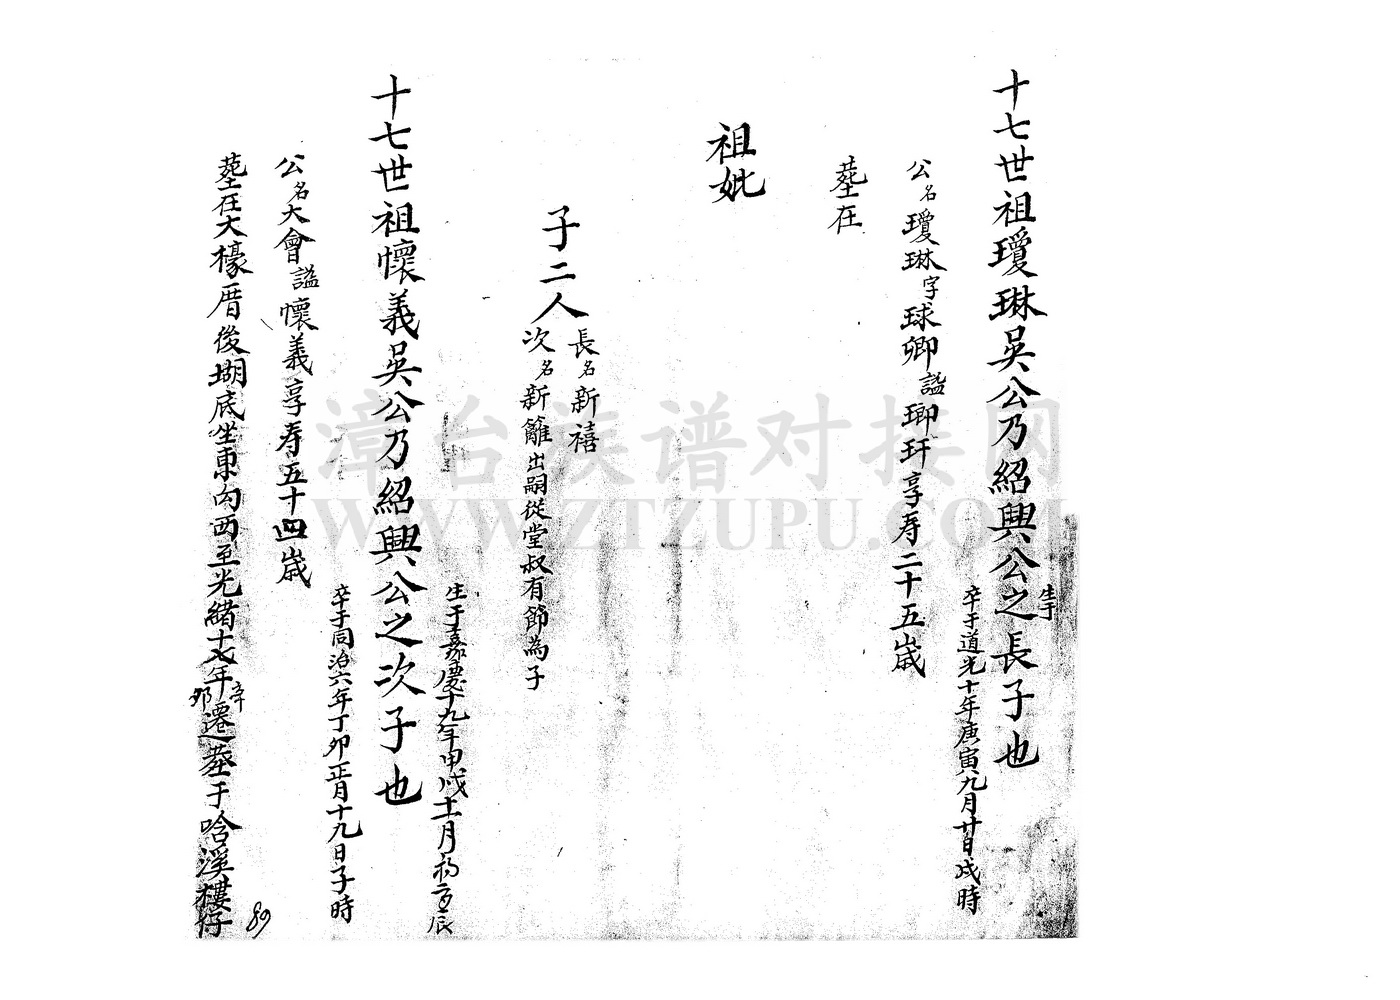 十七世祖瓊琳吳公乃紹興公之長子也
生于
卒于道光十年庚寅九月廿日戌時
公名瓊琳字球卿諡瑯玕享寿二十五歲
塟在
祖妣
子二人
長名新禧
次名新籬出嗣從堂叔有節為子
生于嘉慶十九年甲戌十一月初二日辰
十七世祖懷義吳公乃紹興公之次子也
卒于同治六年丁卯正月十九日子時
公名大會諡懷義享寿五十四歲
塟在大檺厝後坳底坐東向西至光緒十七年辛卯遷塟于唅溪樓仔
89
漳台族谱对接网
WWW.ZTZUPU.COM